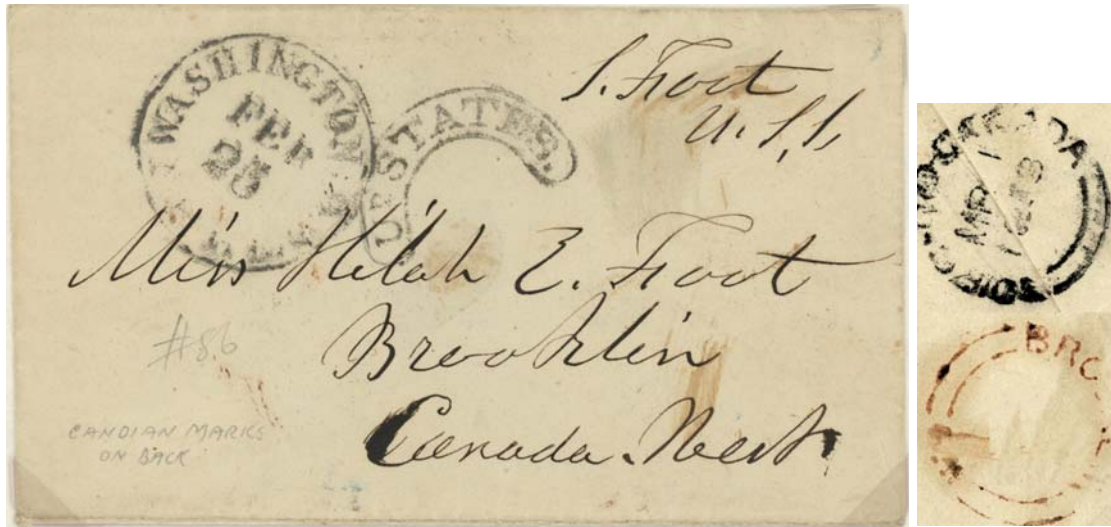 WASHINGTON
FEB
25
U STATES.
S. Foot
U.S.S
Miss Hilah E. Foot
Brooklin
Canada West
#86
CANDIAN MARKS
ON BACK
CANADA
MR
1
BRO